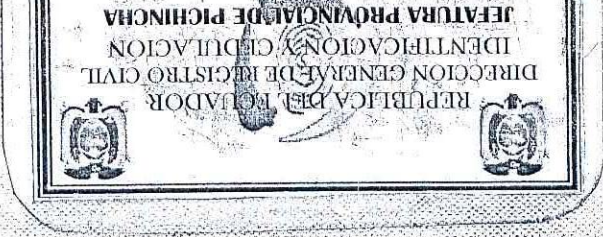 REPUBLICA DEL ECUADOR
DIRECCION GENERAL DE REGISTRO CIVIL
IDENTIFICACION Y CEDULACION
JEFATURA PROVINCIAL DE PICHINCHA